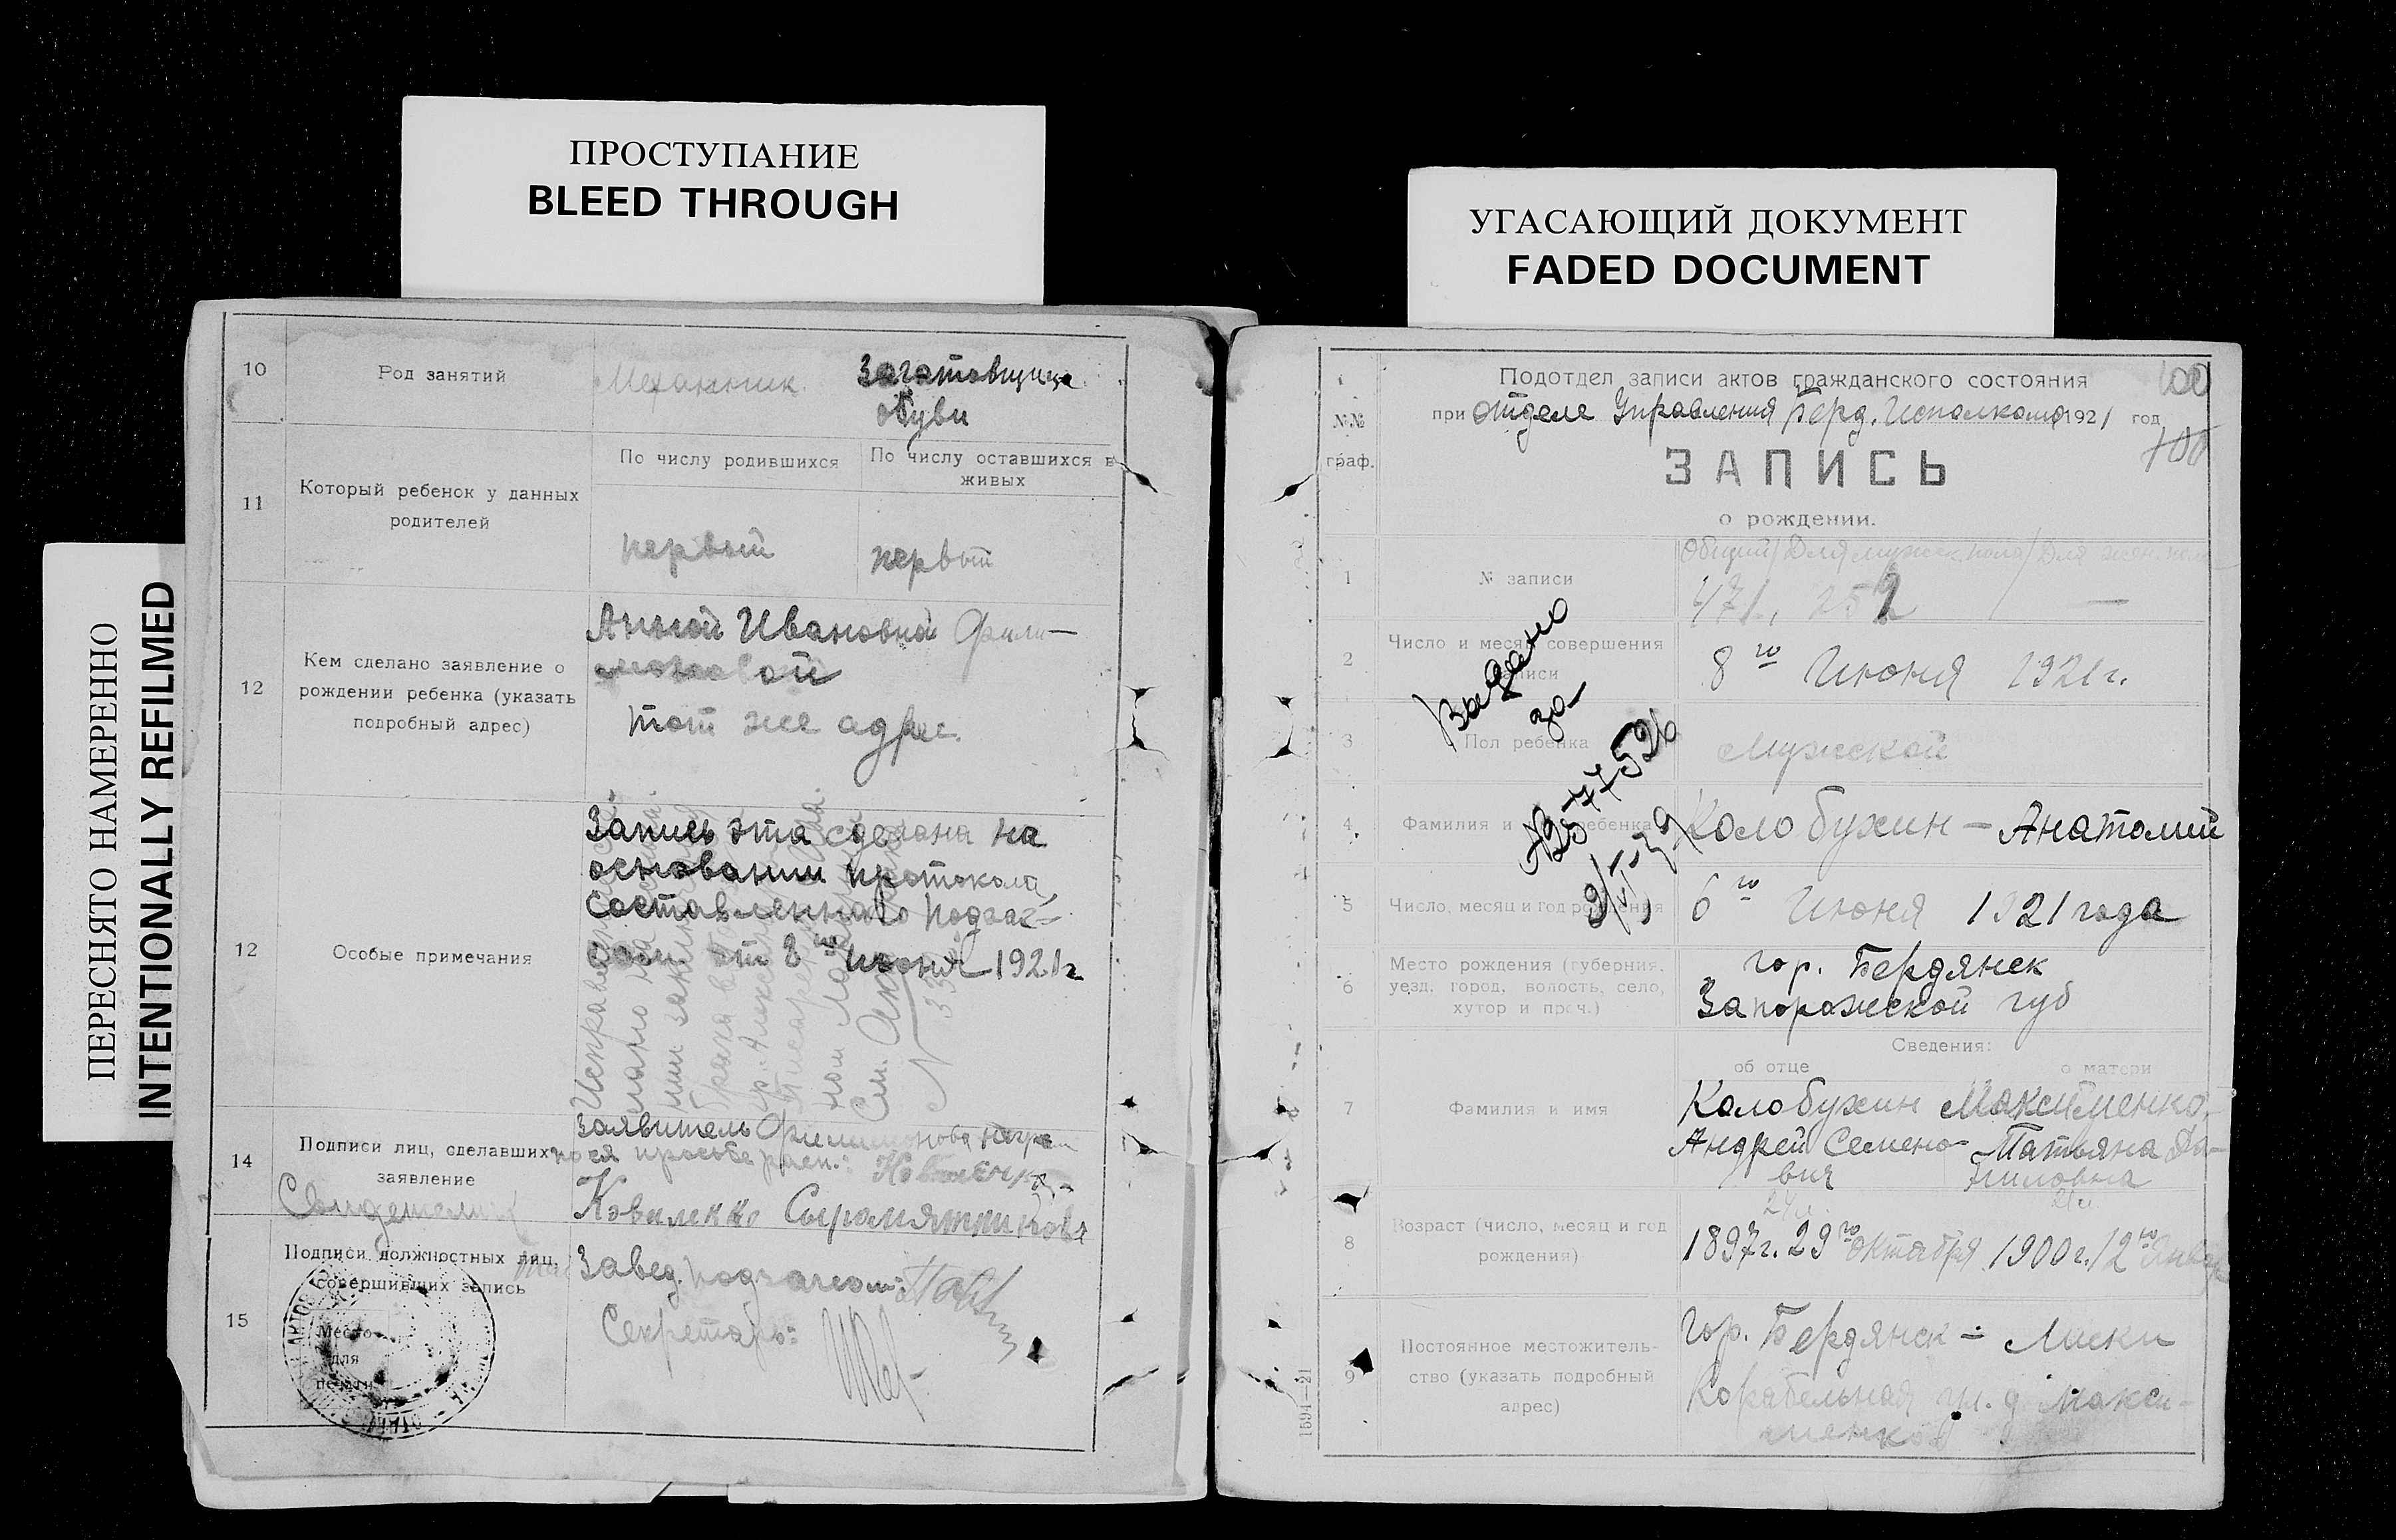 ПРОСТУПАНИЕ
BLEED THROUGH
УГАСАЮЩИЙ ДОКУМЕНТ
FADED DOCUMENT
ПЕРЕСНЯТО НАМЕРЕННО
INTENTIONALLY REFILMED
10 Род занятий Механник Заготовщица
обуви
11 Который ребенок у данных
родителей
По числу родившихся
По числу оставшихся в
живых
первый первый
12 Кем сделано заявление о
рождении ребенка (указать
подробный адрес)
Анной Ивановной Фили-
моновой
тот же адрес.
12 Особые примечания
Запись эта сделана на
основании протокола
составленнаго подзаг-
сом от 8го Июня 1921 г
14 Подписи лиц, сделавших
заявление
Свидетели
Заявитель Филимонова негра
по ея просьбе расп.:
Коваленко Сыромятникова
15 Подписи должностных лиц,
совершивших запись
Место
для
печати
Завед. подзагсом:
Секретарь:
№№
граф.
Подотдел записи актов гражданского состояния 100
при отделе Управления Берд. Исполкома 1921 год
100
ЗАПИСЬ
о рождении.
Общий/Для мужск. пола/Для женск.
1 № записи 471, 252 —
2 Число и месяц совершения
записи
8го Июня 1921 г.
3 Пол ребенка Мужской
4 Фамилия и ребенка Колобухин – Анатолий
5 Число, месяц и год рождения 6го Июня 1921 года
6 Место рождения (губерния,
уезд, город, волость, село,
хутор и проч.)
гор. Бердянск
Запорожской губ
Выдано
за
Сведения:
об отце о матери
7 Фамилия и имя
Колобухин Максименко,
Андрей Семено- Татьяна Да-
вич ниловна
8 Возраст (число, месяц и год
рождения)
24 л. 21 л.
1897 г. 29го октября 1900 г. 12го Января
9 Постоянное местожитель-
ство (указать подробный
адрес)
гор. Бердянск – Лиски
Корабельная ул. д Макси-
менко
1594—21